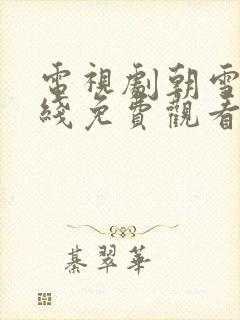 電視劇朝雪
綫免費觀看
綦翠華